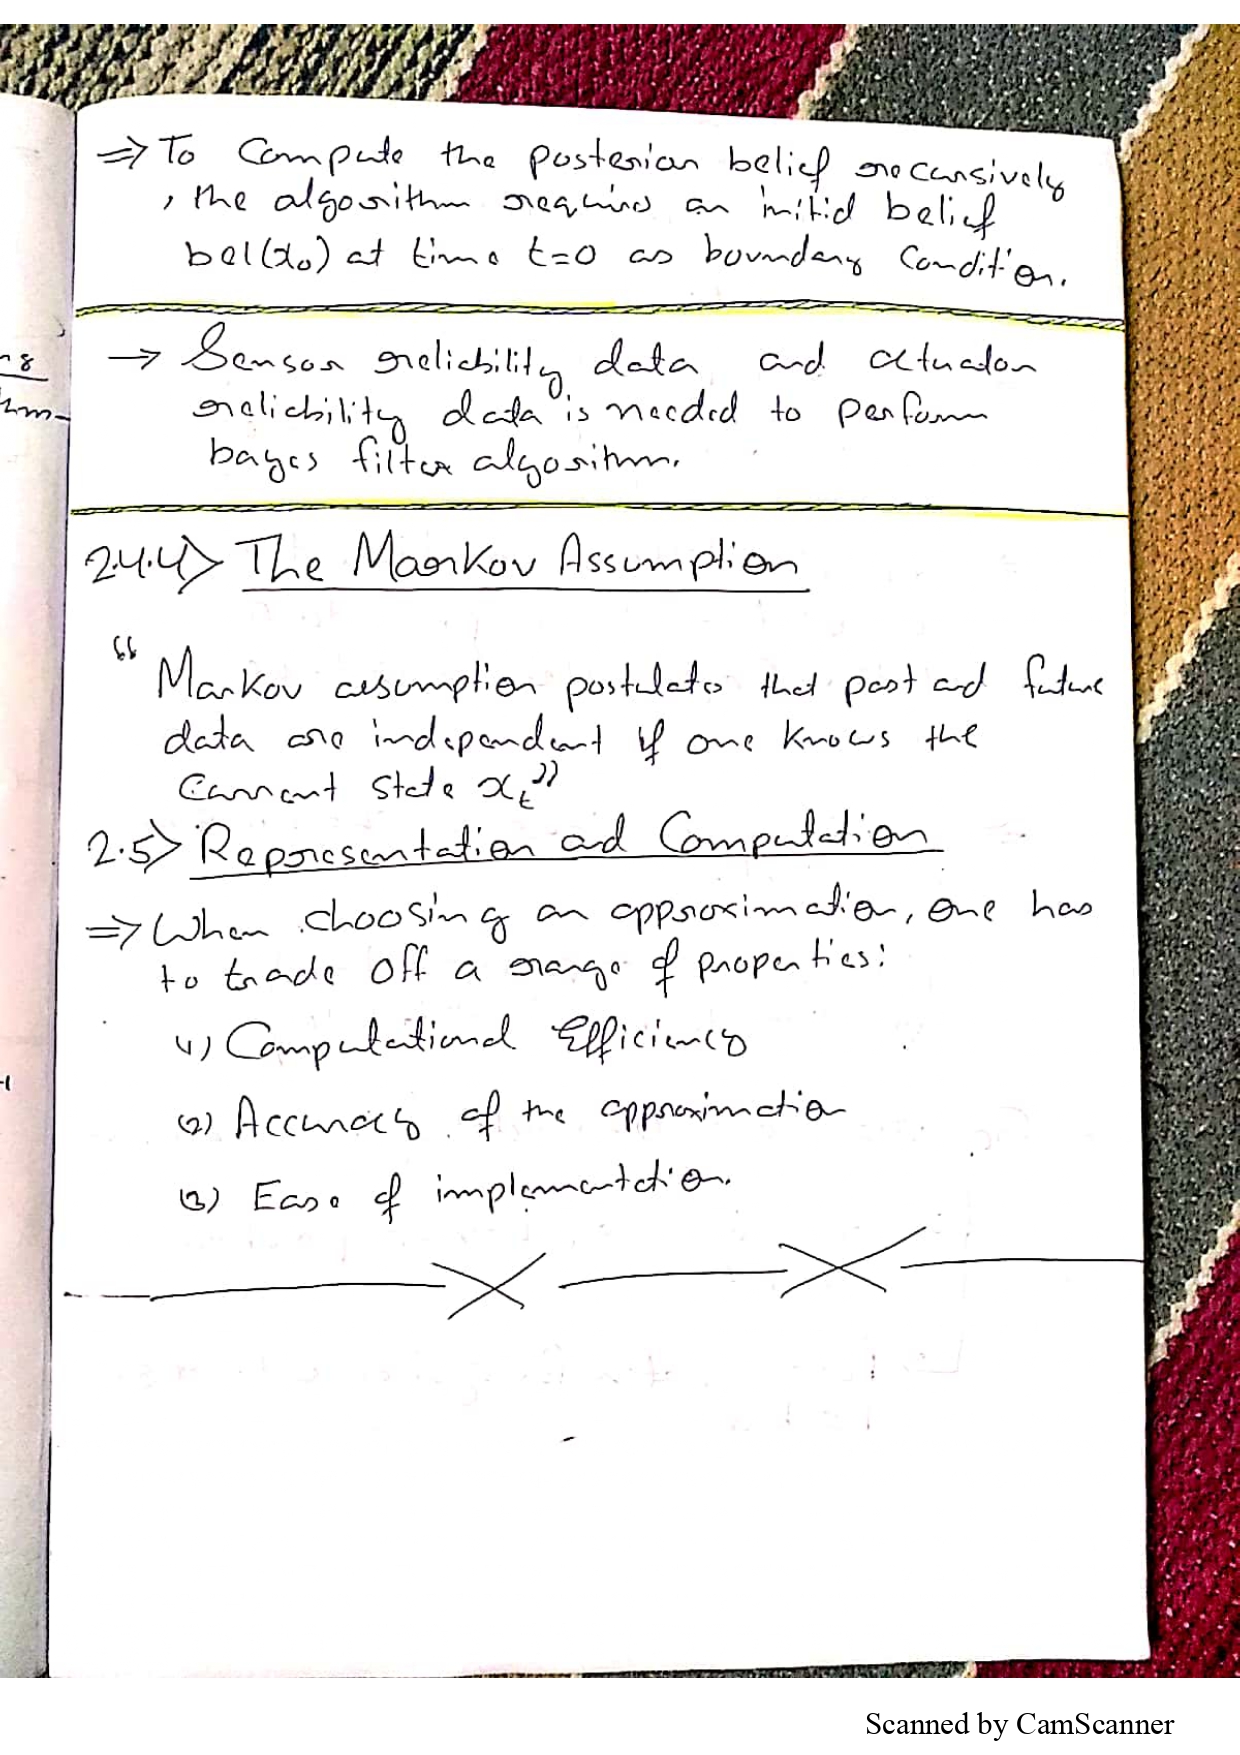 ⇒ To compute the posterior belief recursively
, the algorithm requires an initial belief
bel(x₀) at time t=0 as boundary condition.
→ Sensor reliability data and actuator
reliability data is needed to perform
bayes filter algorithm.
2.4.4> The Markov Assumption
“Markov assumption postulates that past and future
data are independent if one knows the
current state xₜ”
2.5> Representation and Computation
⇒ When choosing an approximation, one has
to trade off a range of properties:
(1) Computational Efficiency
(2) Accuracy of the approximation
(3) Ease of implementation.
Scanned by CamScanner